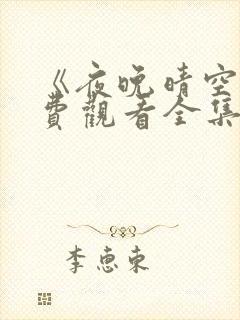 《夜晚晴空
費觀看全集
李恵東